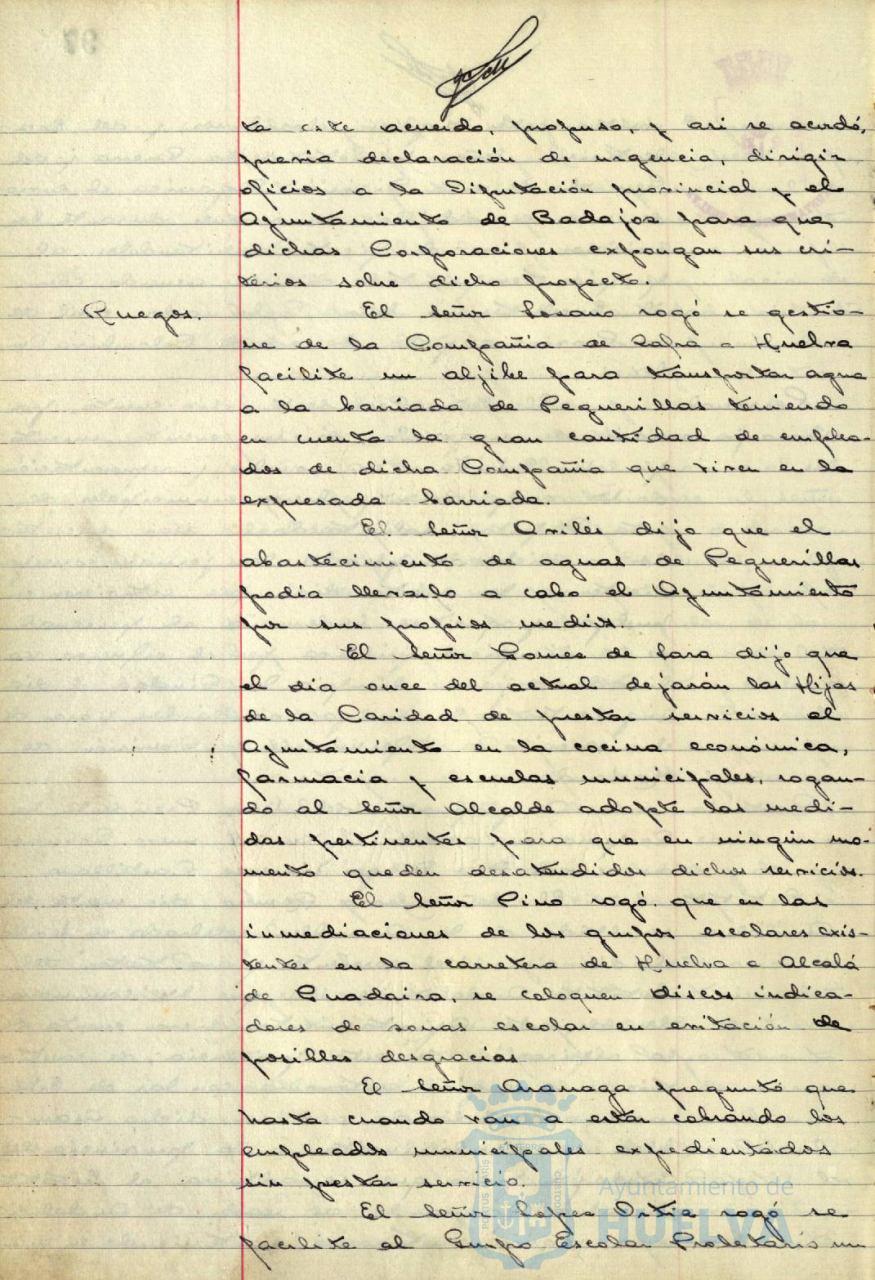 ta este acuerdo, propuso, y asi se acordó,
previa declaración de urgencia, dirigir
oficios a la Diputación provincial y el
Ayuntamiento de Badajoz para que
dichas Corporaciones expongan sus cri-
terios sobre dicho proyecto.
Ruegos.
El Señor Lozano rogó se gestio-
ne de la Compañia de Zafra a Huelva
facilite un aljibe para transportar agua
a la barriada de Peguerillas teniendo
en cuenta la gran cantidad de emplea-
dos de dicha Compañia que viven en la
expresada barriada.
El Señor Avilés dijo que el
abastecimiento de aguas de Peguerillas
podia llevarlo a cabo el Ayuntamiento
por sus propios medios.
El Señor Gomez de Lara dijo que
el dia once del actual dejarán las Hijas
de la Caridad de prestar servicios al
Ayuntamiento en la cocina económica,
farmacia y escuelas municipales, rogan-
do al Señor Alcalde adopte las medi-
das pertinentes para que en ningún mo-
mento queden desatendidos dichos servicios.
El Señor Pino rogó que en las
inmediaciones de los grupos escolares exis-
tentes en la carretera de Huelva a Alcalá
de Guadaira, se coloquen discos indica-
dores de zonas escolar en evitación de
posibles desgracias
El Señor Aranaga preguntó que
hasta cuando van a estar cobrando los
empleados municipales expedientados
sin prestar servicio.
El Señor Lopez Ortiz rogó se
facilite al Grupo Escolar Proletario un
Ayuntamiento de
HUELVA